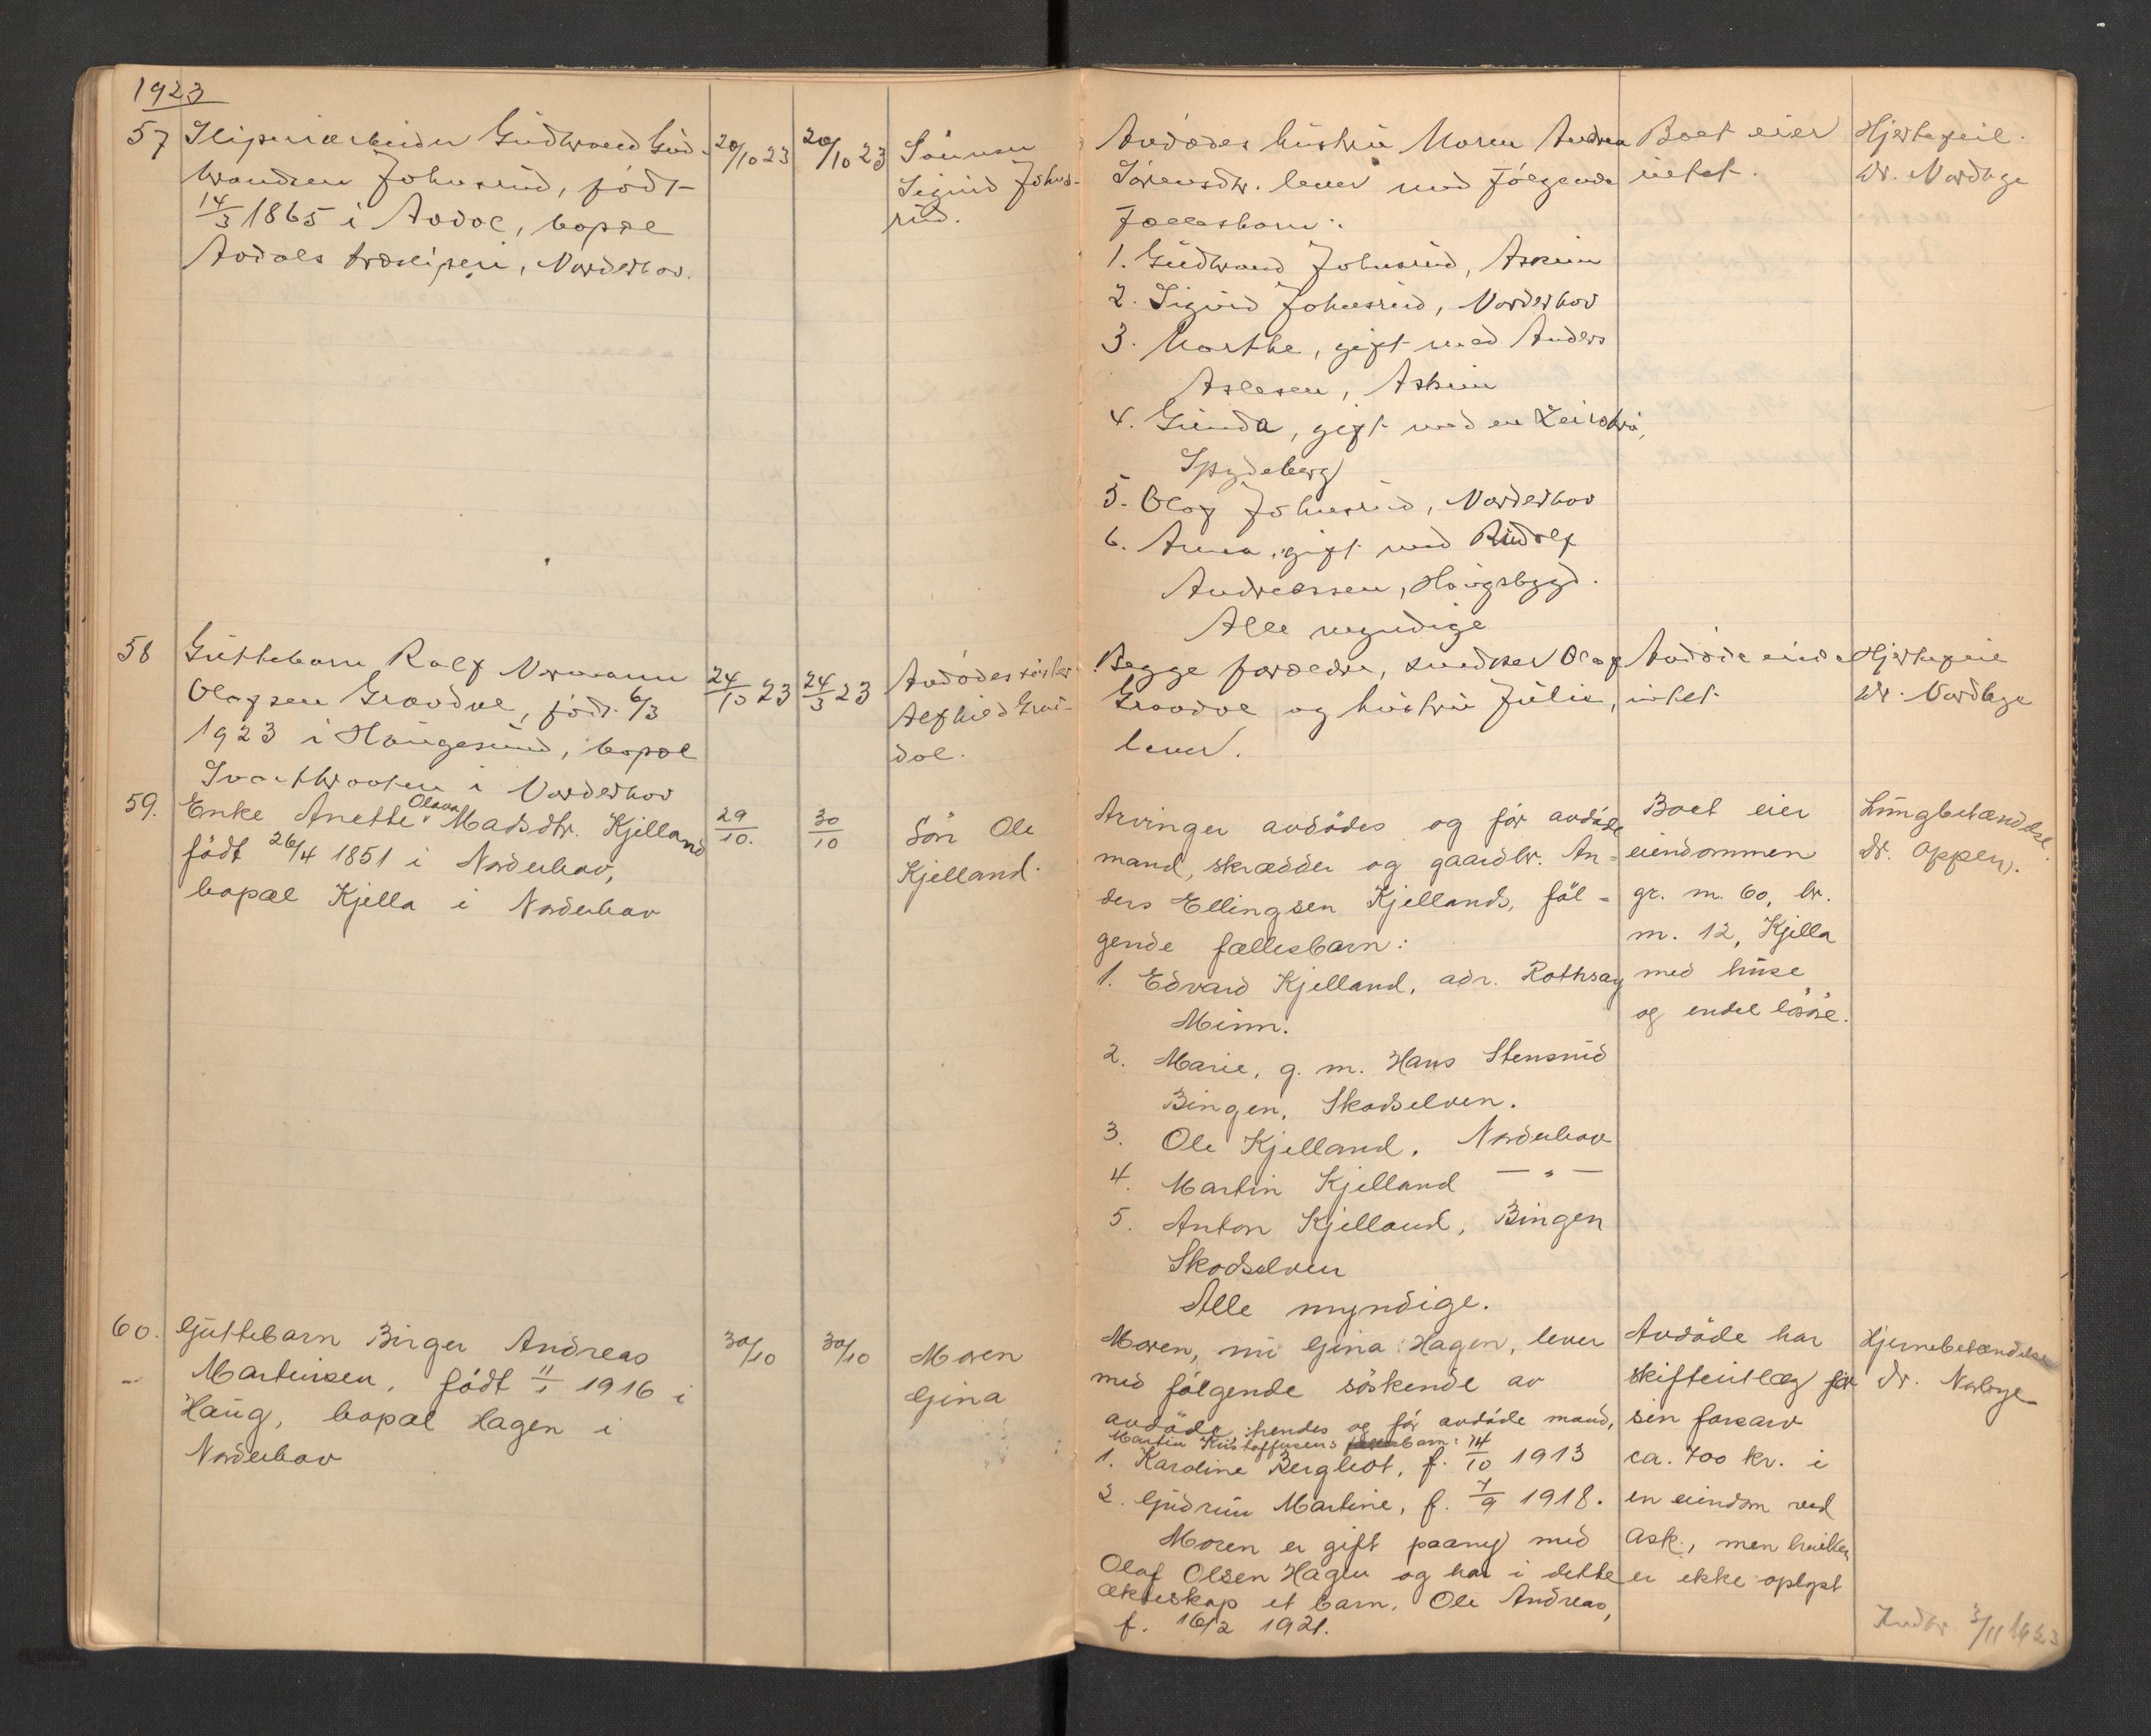 1923
57 Sliperiarbeider Gudbrand Gud-
brandsen Johnsrud, født
14/3 1865 i Aadal, bopæl
Aadals træsliperi, Norderhov.
20/10 23
20/10 23
Sønnen
Sigurd Johns-
rud.
Avdødes hustru Maren Andrea
Sørensdtr. lever med følgende
fællesbarn:
1. Gudbrand Johnsrud, Askim
2. Sigurd Johnsrud, Norderhov
3. Marthe, gift med Anders
Aslesen, Askim
4. Gunda, gift med en
Spydeberg
5. Olaf Johnsrud, Norderhov
6. Anna, gift med Rudolf
Andreassen, Haugsbygd.
Alle myndige
Boet eier
intet.
Hjertefeil.
Dr. Nordbye
58 Guttebarn Ralf Normann
Olafsen Graadal, født 6/3
1923 i Haugesund, bopæl
Svarthraaten i Norderhov
24/10 23
24/3 23
Avdødes søster
Alfhild Graa-
dal.
Begge forældre, smelter Olaf
Graadal og hustru Julie,
lever.
Avdøde eiede
intet
Hjertefeil
Dr. Nordbye
59. Enke Anette Olava Madsdtr. Kjelland
født 26/4 1851 i Norderhov,
bopæl Kjella i Norderhov
29/10.
30/10
Søn Ole
Kjelland.
Arvinger avdødes og før avdøde
mand, skrædder og gaardbr. An-
ders Ellingsen Kjellands, føl-
gende fællesbarn:
1. Edvard Kjelland, adr. Rothsay
Minn.
2. Marie, g. m. Hans Stensrud
Bingen, Skodselven.
3. Ole Kjelland, Norderhov
4. Martin Kjelland — " —
5. Anton Kjelland, Bingen
Skodselven
Alle myndige.
Boet eier
eiendommen
gr. m. 60, br.
m. 12, Kjella
med huse
og endel løsøre.
Lungbetændelse.
Dr. Oppen.
60. Guttebarn Birger Andreas
Martinsen, født 11/1 1916 i
Haug, bopæl Hagen i
Norderhov
30/10
30/10
Moren
Gina
Moren, nu Gina Hagen, lever
med følgende søskende av
avdøde: hendes og før avdøde mand,
Martin Kristoffersens barn:
1. Karoline Bergliot, f. 14/10 1913
2. Gudrun Martine, f. 7/9 1918.
Moren er gift paany med
Olaf Olsen Hagen og har i dette
ekteskap et barn, Ole Andreas,
f. 16/2 1921.
Avdøde har
skifteutlæg for
sin farsarv
ca. 700 kr. i
en eiendom ved
Ask, men hvilken
er ikke oplyst
Hjernebetændelse
Dr. Nordbye
Indb. 3/11 1923